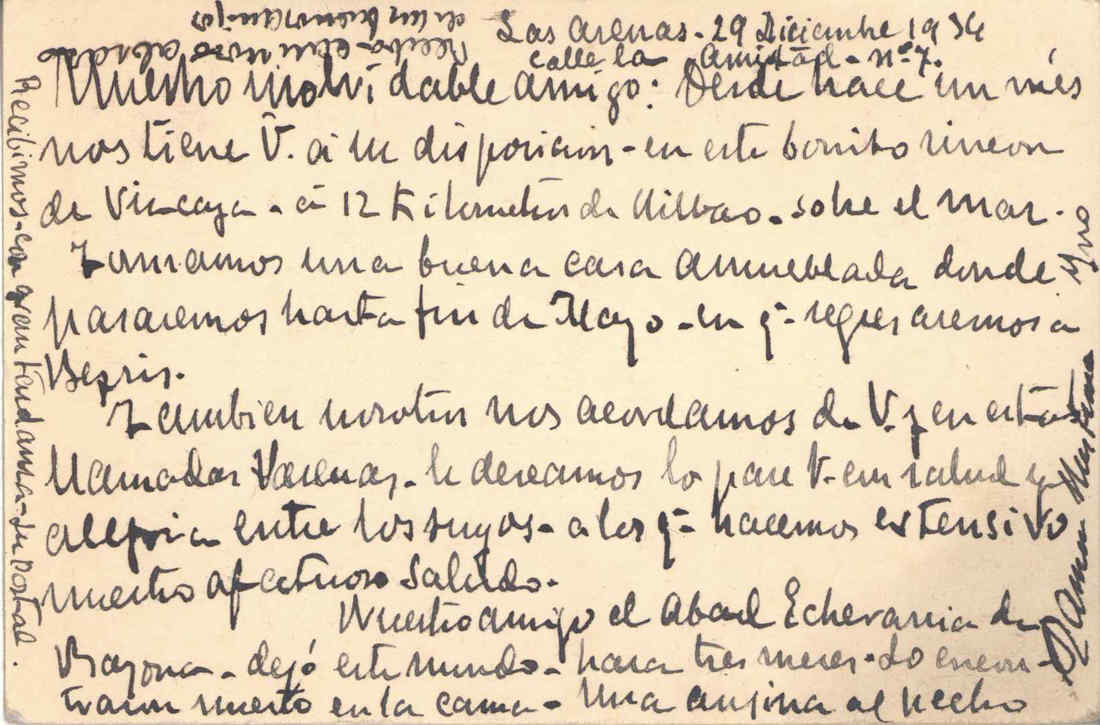 Las Arenas - 29 Diciembre 1934
calle la Amistad - nº 7.
Nuestro inolvidable amigo: Desde hace un més
nos tiene V. á su disposicion - en este bonito rincon
de Viscaya - á 12 Kilometros de Bilbao - sobre el mar.
Tomamos una buena casa amueblada donde
pasaremos hasta fin de Mayo - en q. regresaremos a
Tambien nosotros nos acordamos de V. y en estas
llamadas Pascuas - le deseamos lo pase V. en salud y
alegria entre los suyos - a los q. hacemos extensivo
nuestro afectuoso saludo.
Nuestro amigo el Abad Echevarria de
Bayona - dejó este mundo - hara tres meses. Lo encon-
traron muerto en la cama - Una angina al pecho
Recibimos - con gran tardansa - su postal.
Reciba el cariñoso abrazo
de sus buenos amigos
Ramon